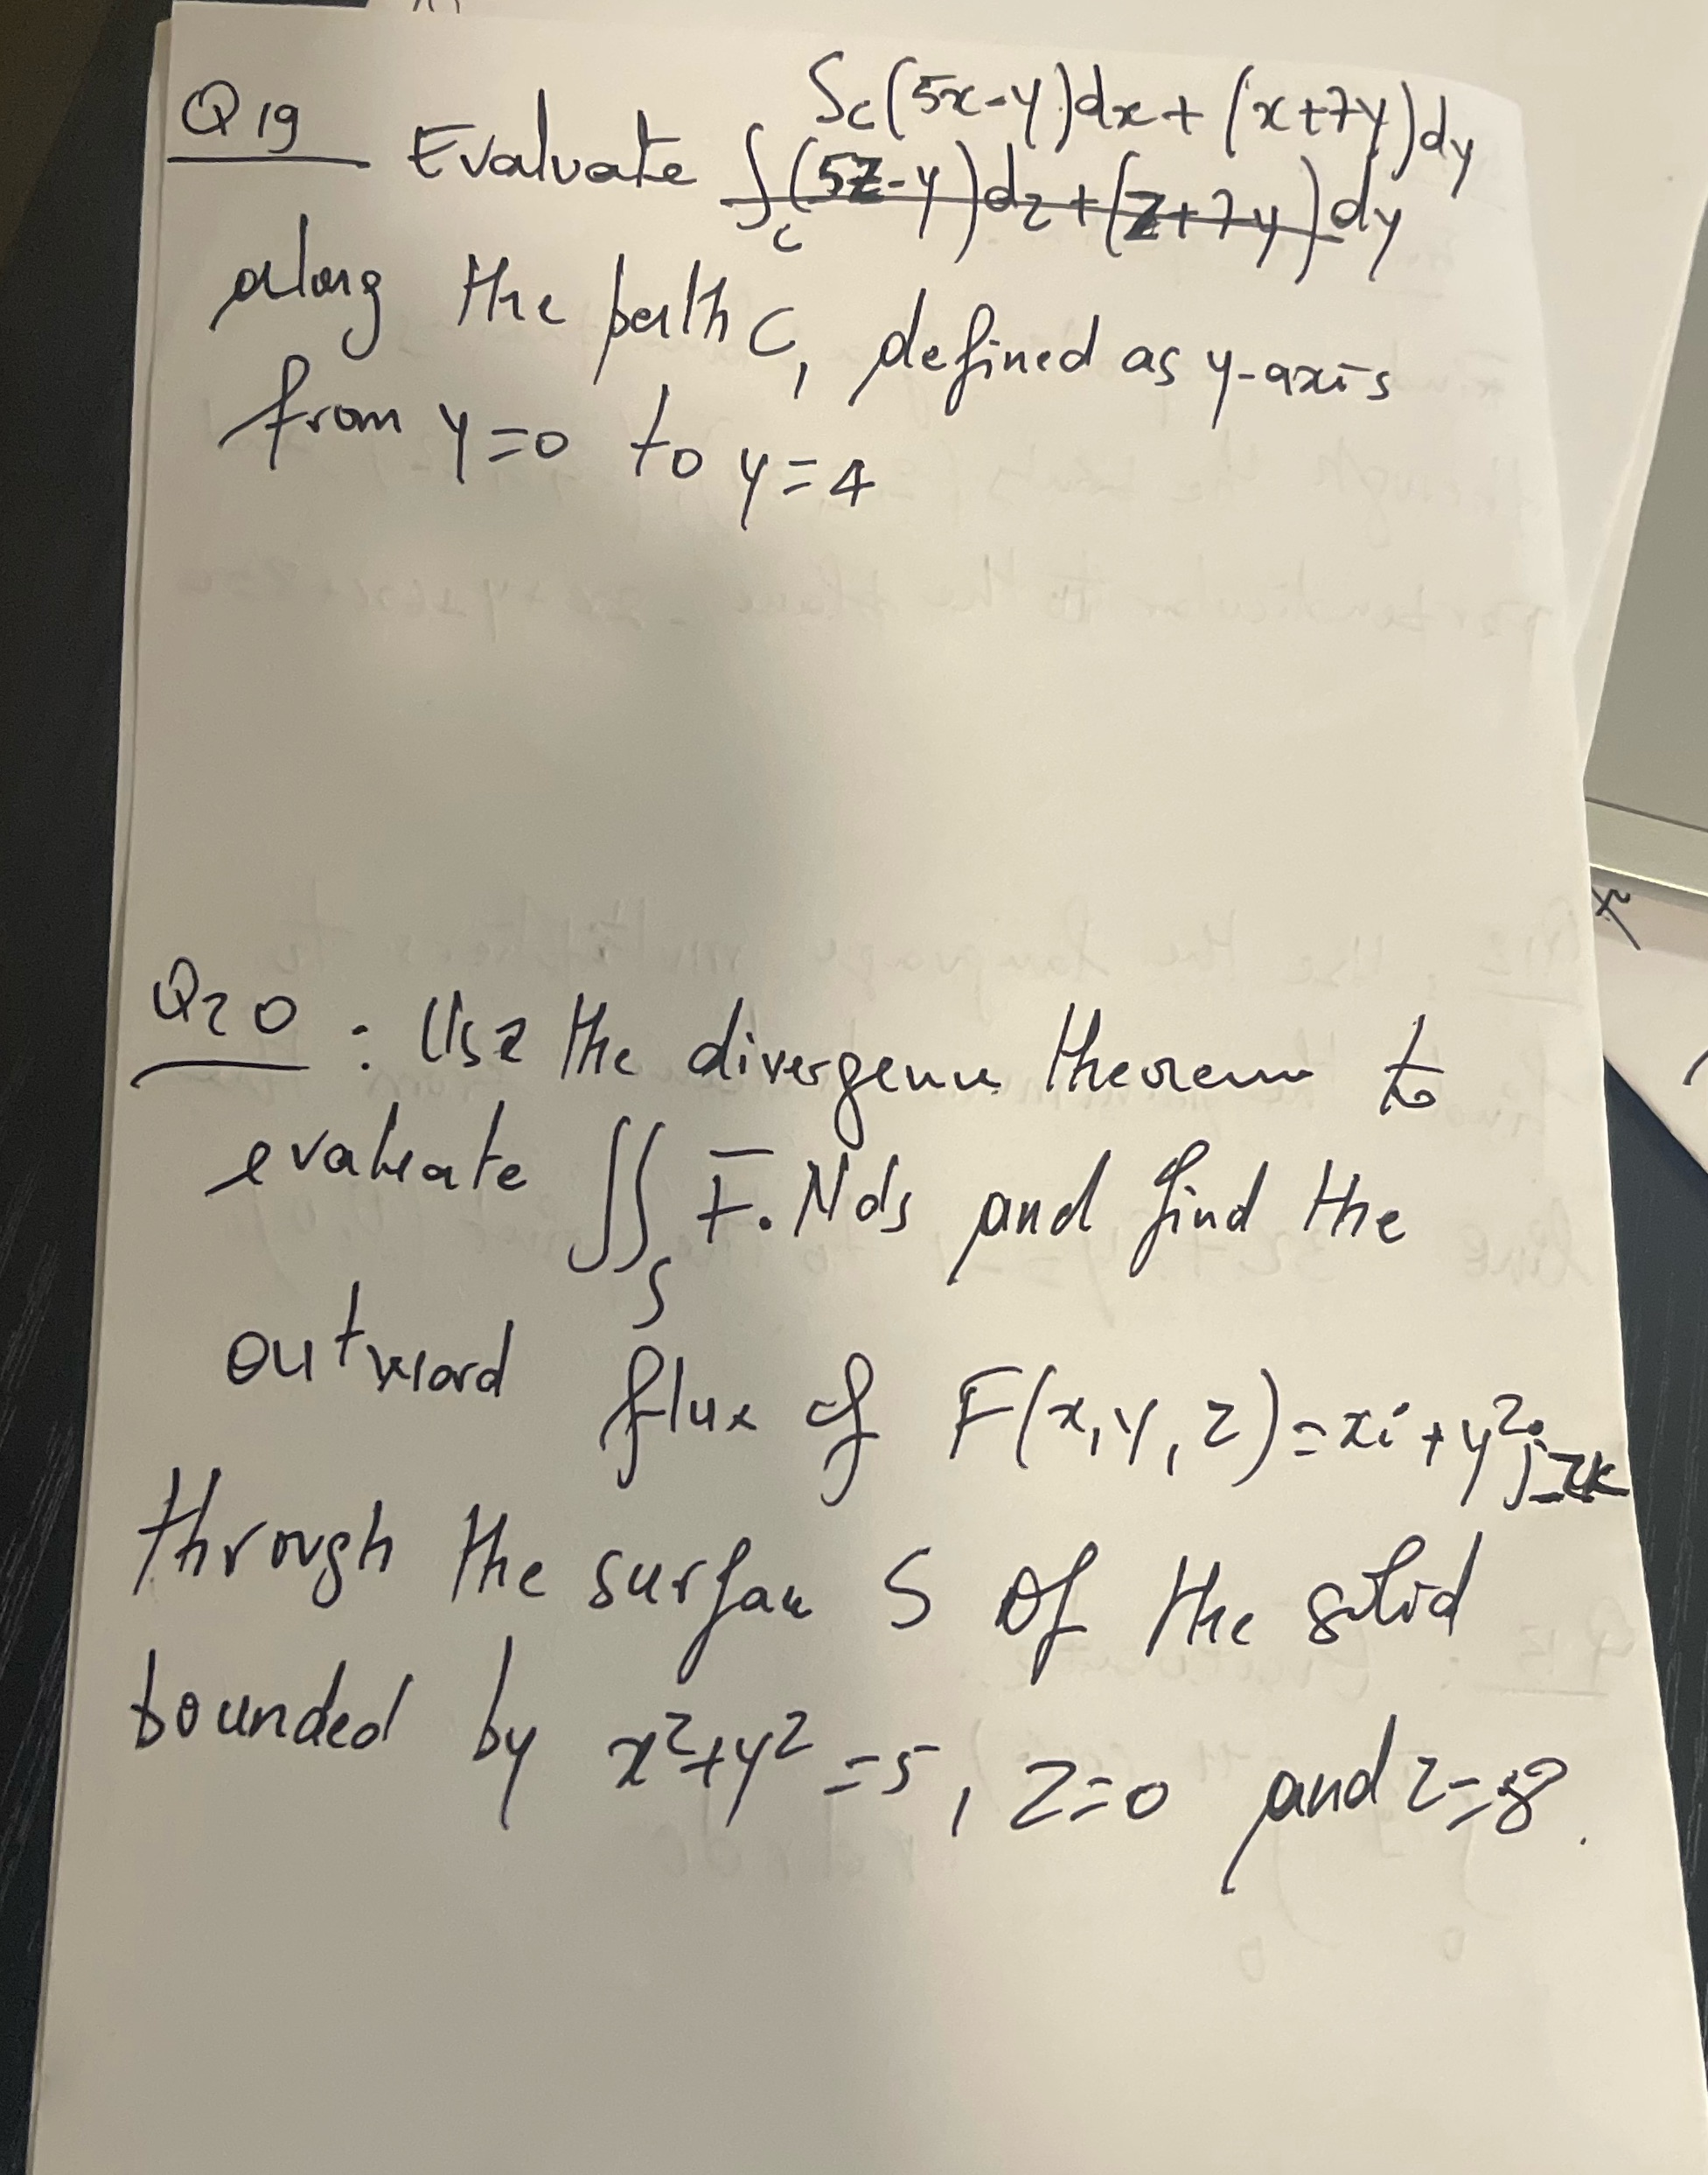 Q19 Evaluate ∫c(5x-y)dx + (x+7y)dy
∫c(5z-y)dz+(z+7y)dy
along the path C, defined as y-axis
from y=0 to y=4
Q20 : Use the divergence theorem to
evaluate ∬S F̅. N ds and find the
outward flux of F(x,y,z)=xi+y²j-zk
through the surface S of the solid
bounded by x²+y²=5, z=0 and z=8.